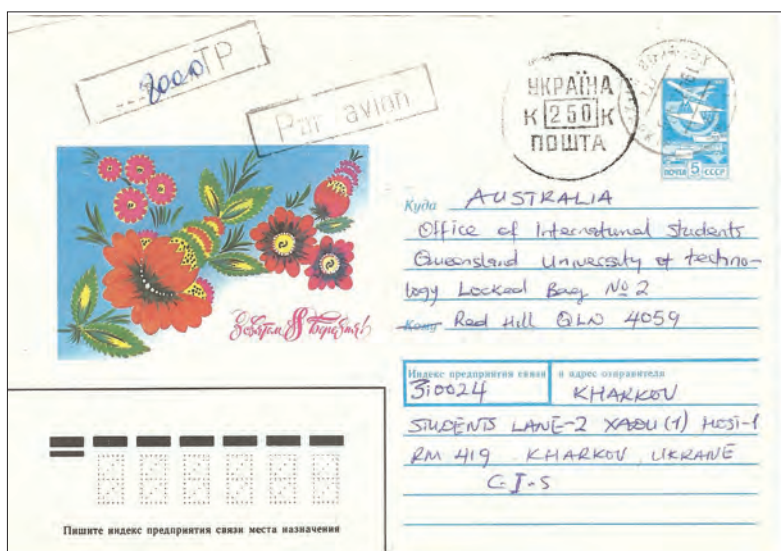 8000 ТР
Par avion
УКРАЇНА
К 250 К
ПОШТА
ПОЧТА 5 СССР
З святом 8 Березня!
Куда AUSTRALIA
Office of International Students
Queensland University of techno-
logy Locked Bag No 2
Кому Red Hill QLN 4059
Индекс предприятия связи и адрес отправителя
310024 KHARKOV
STUDENTS LANE-2 ХАДИ (1) HOST-1
RM 419 KHARKOV, UKRANE
C.I.S
Пишите индекс предприятия связи места назначения